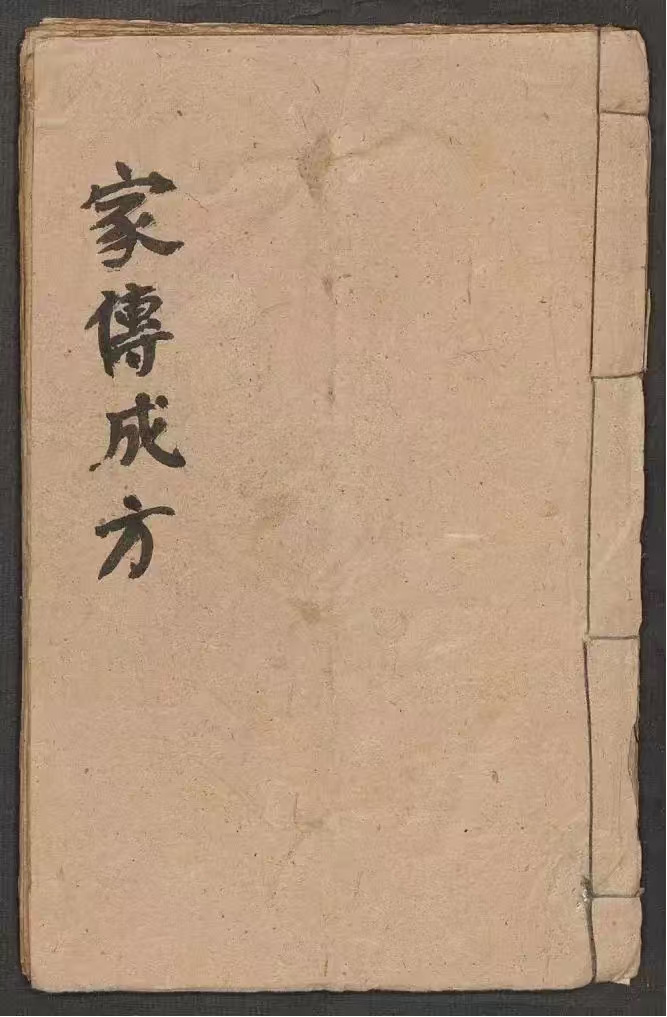 家傳成方